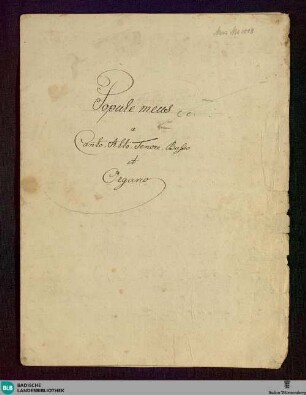 Popule meus
a
Canto. Alto. Tenore. Basso
et
Organo
BLB
BADISCHE
LANDESBIBLIOTHEK
Baden-Württemberg